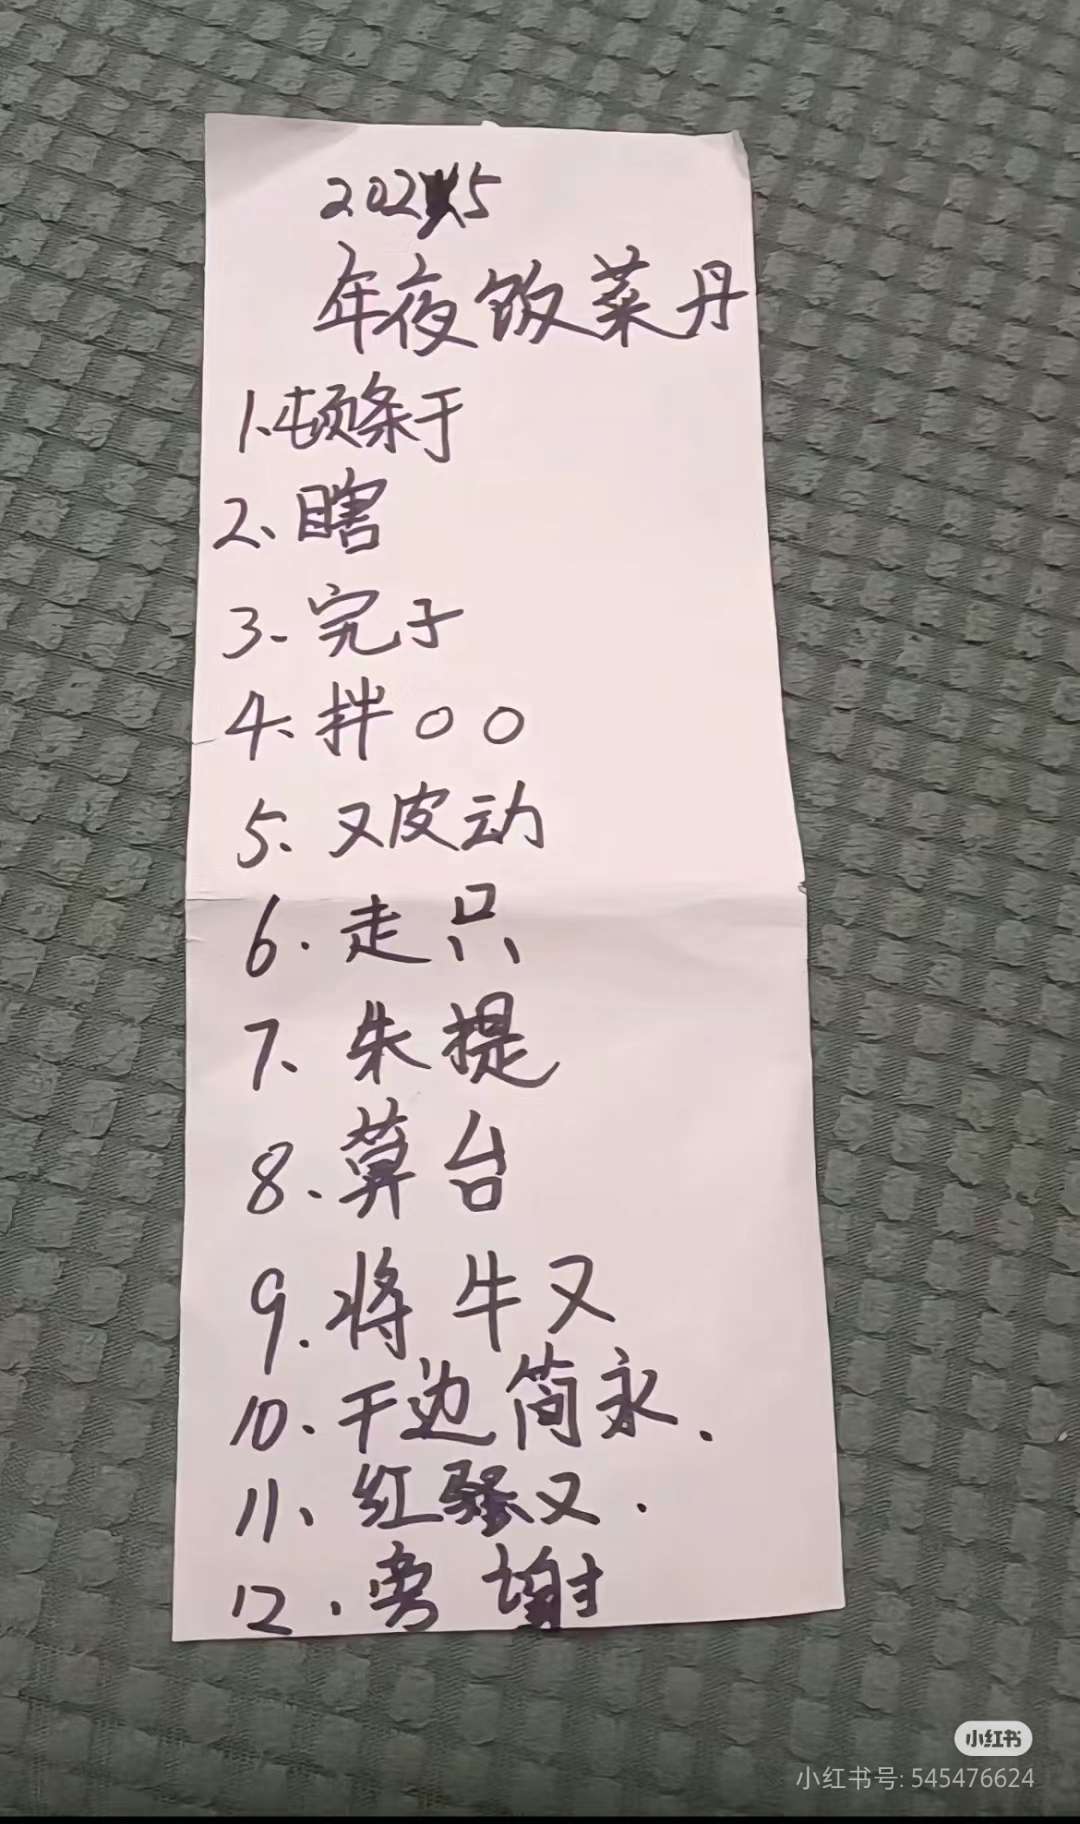 2025
年夜饭菜丹
1.顿条于
2、瞎
3、完子
4、拌○○
5、又皮动
6.走只
7、朱提
8.算台
9.将牛又
10.干边简永.
11、红骚又.
12.旁谢
小红书
小红书号: 545476624